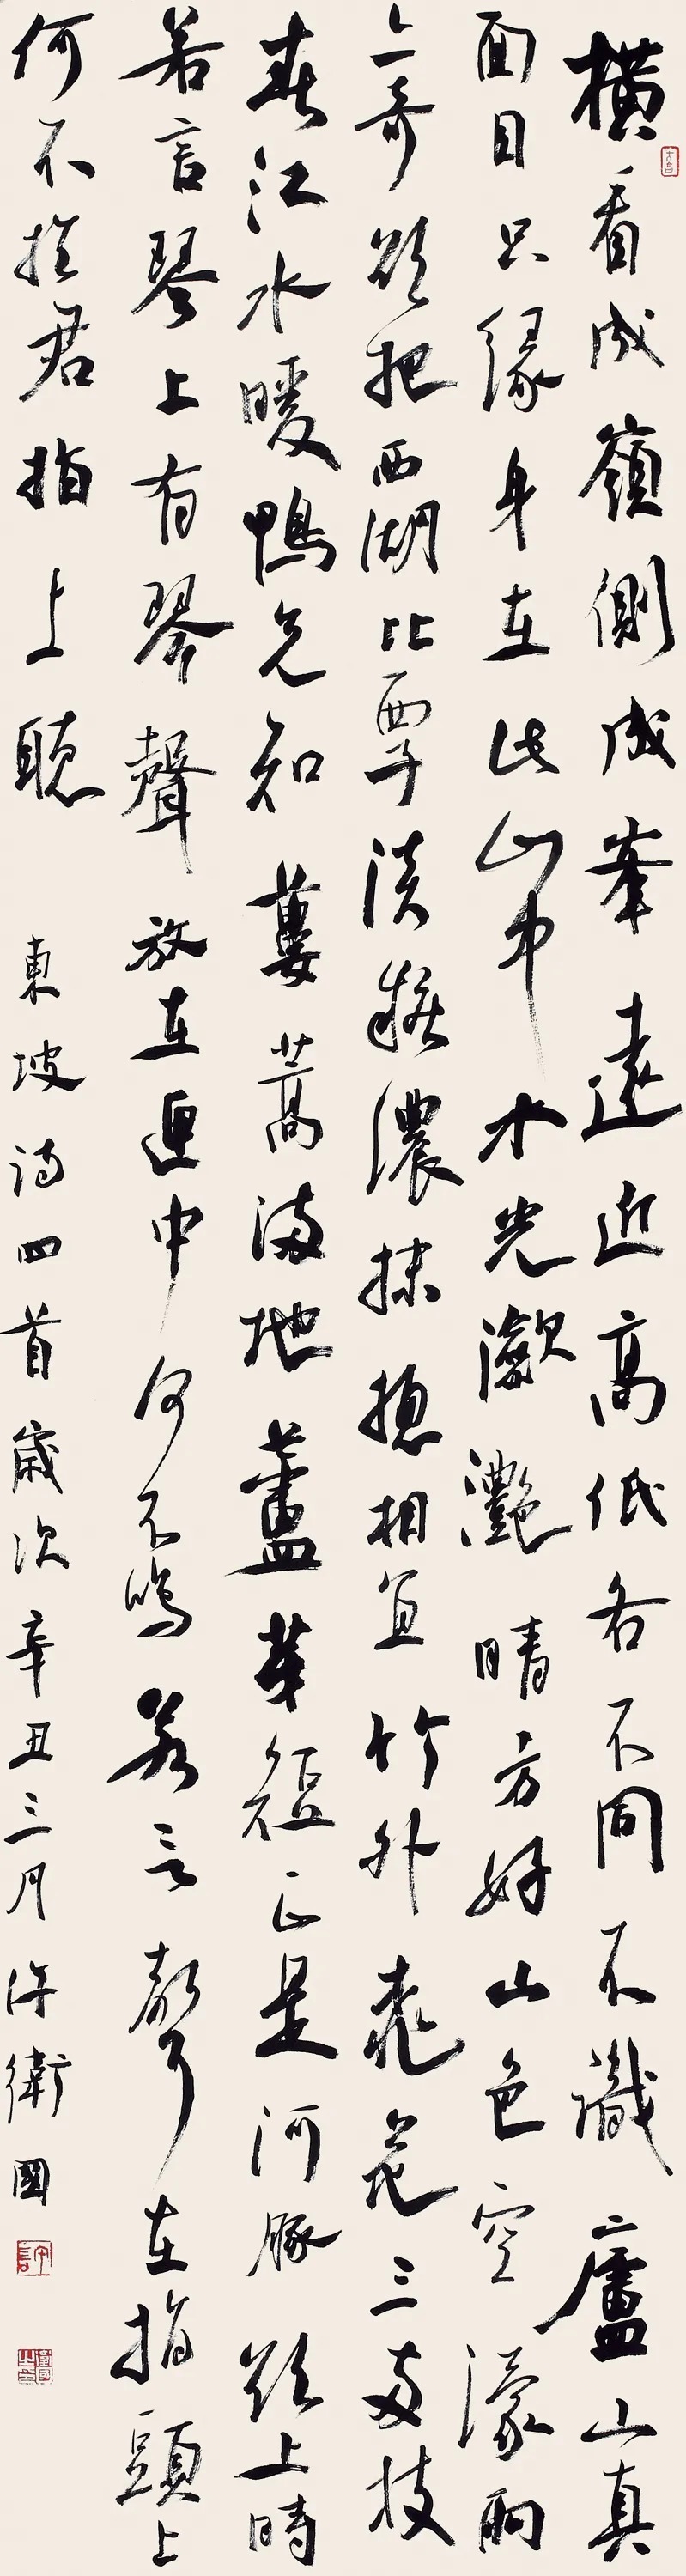 橫看成嶺側成峯遠近高低各不同不識廬山真
面目只緣身在此山中水光瀲灩晴方好山色空濛雨
亦奇欲把西湖比西子淡粧濃抹總相宜竹外桃花三兩枝
春江水暖鴨先知蔞蒿滿地蘆芽短正是河豚欲上時
若言琴上有琴聲放在匣中何不鳴若言聲在指頭上
何不於君指上聽 東坡詩四首歲次辛丑三月許衛國